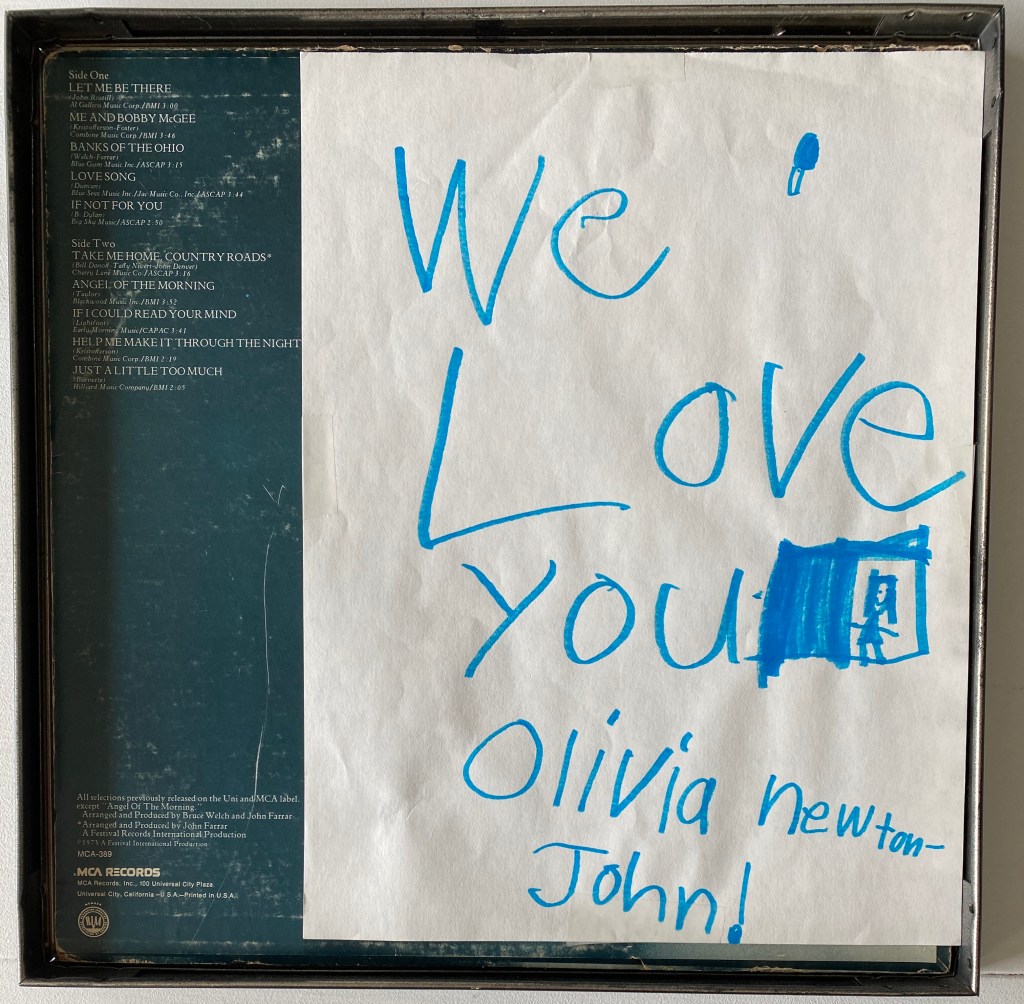 Side One
LET ME BE THERE
(John Rostill)
Al Gallico Music Corp./BMI 3:00
ME AND BOBBY McGEE
(Kristofferson-Foster)
Combine Music Corp./BMI 3:46
BANKS OF THE OHIO
(Welch-Farrar)
Blue Gum Music Inc./ASCAP 3:15
LOVE SONG
(Duncan)
Blue Seas Music Inc./Jac Music Co., Inc./ASCAP 3:44
IF NOT FOR YOU
(B. Dylan)
Big Sky Music/ASCAP 2:50
Side Two
TAKE ME HOME, COUNTRY ROADS*
(Bill Danoff-Taffy Nivert-John Denver)
Cherry Lane Music Co./ASCAP 3:16
ANGEL OF THE MORNING
(Taylor)
Blackwood Music Inc./BMI 3:52
IF I COULD READ YOUR MIND
(Lightfoot)
Early Morning Music/CAPAC 3:41
HELP ME MAKE IT THROUGH THE NIGHT
(Kristofferson)
Combine Music Corp./BMI 2:19
JUST A LITTLE TOO MUCH
(Burnette)
Hilliard Music Company/BMI 2:05
All selections previously released on the Uni and MCA label,
except "Angel Of The Morning."
Arranged and Produced by Bruce Welch and John Farrar
*Arranged and Produced by John Farrar
A Festival Records International Production
℗1973 A Festival International Production
MCA-389
MCA RECORDS
MCA Records, Inc., 100 Universal City Plaza
Universal City, California-U.S.A.-Printed in U.S.A.
We
Love
you
Olivia newton-
John!